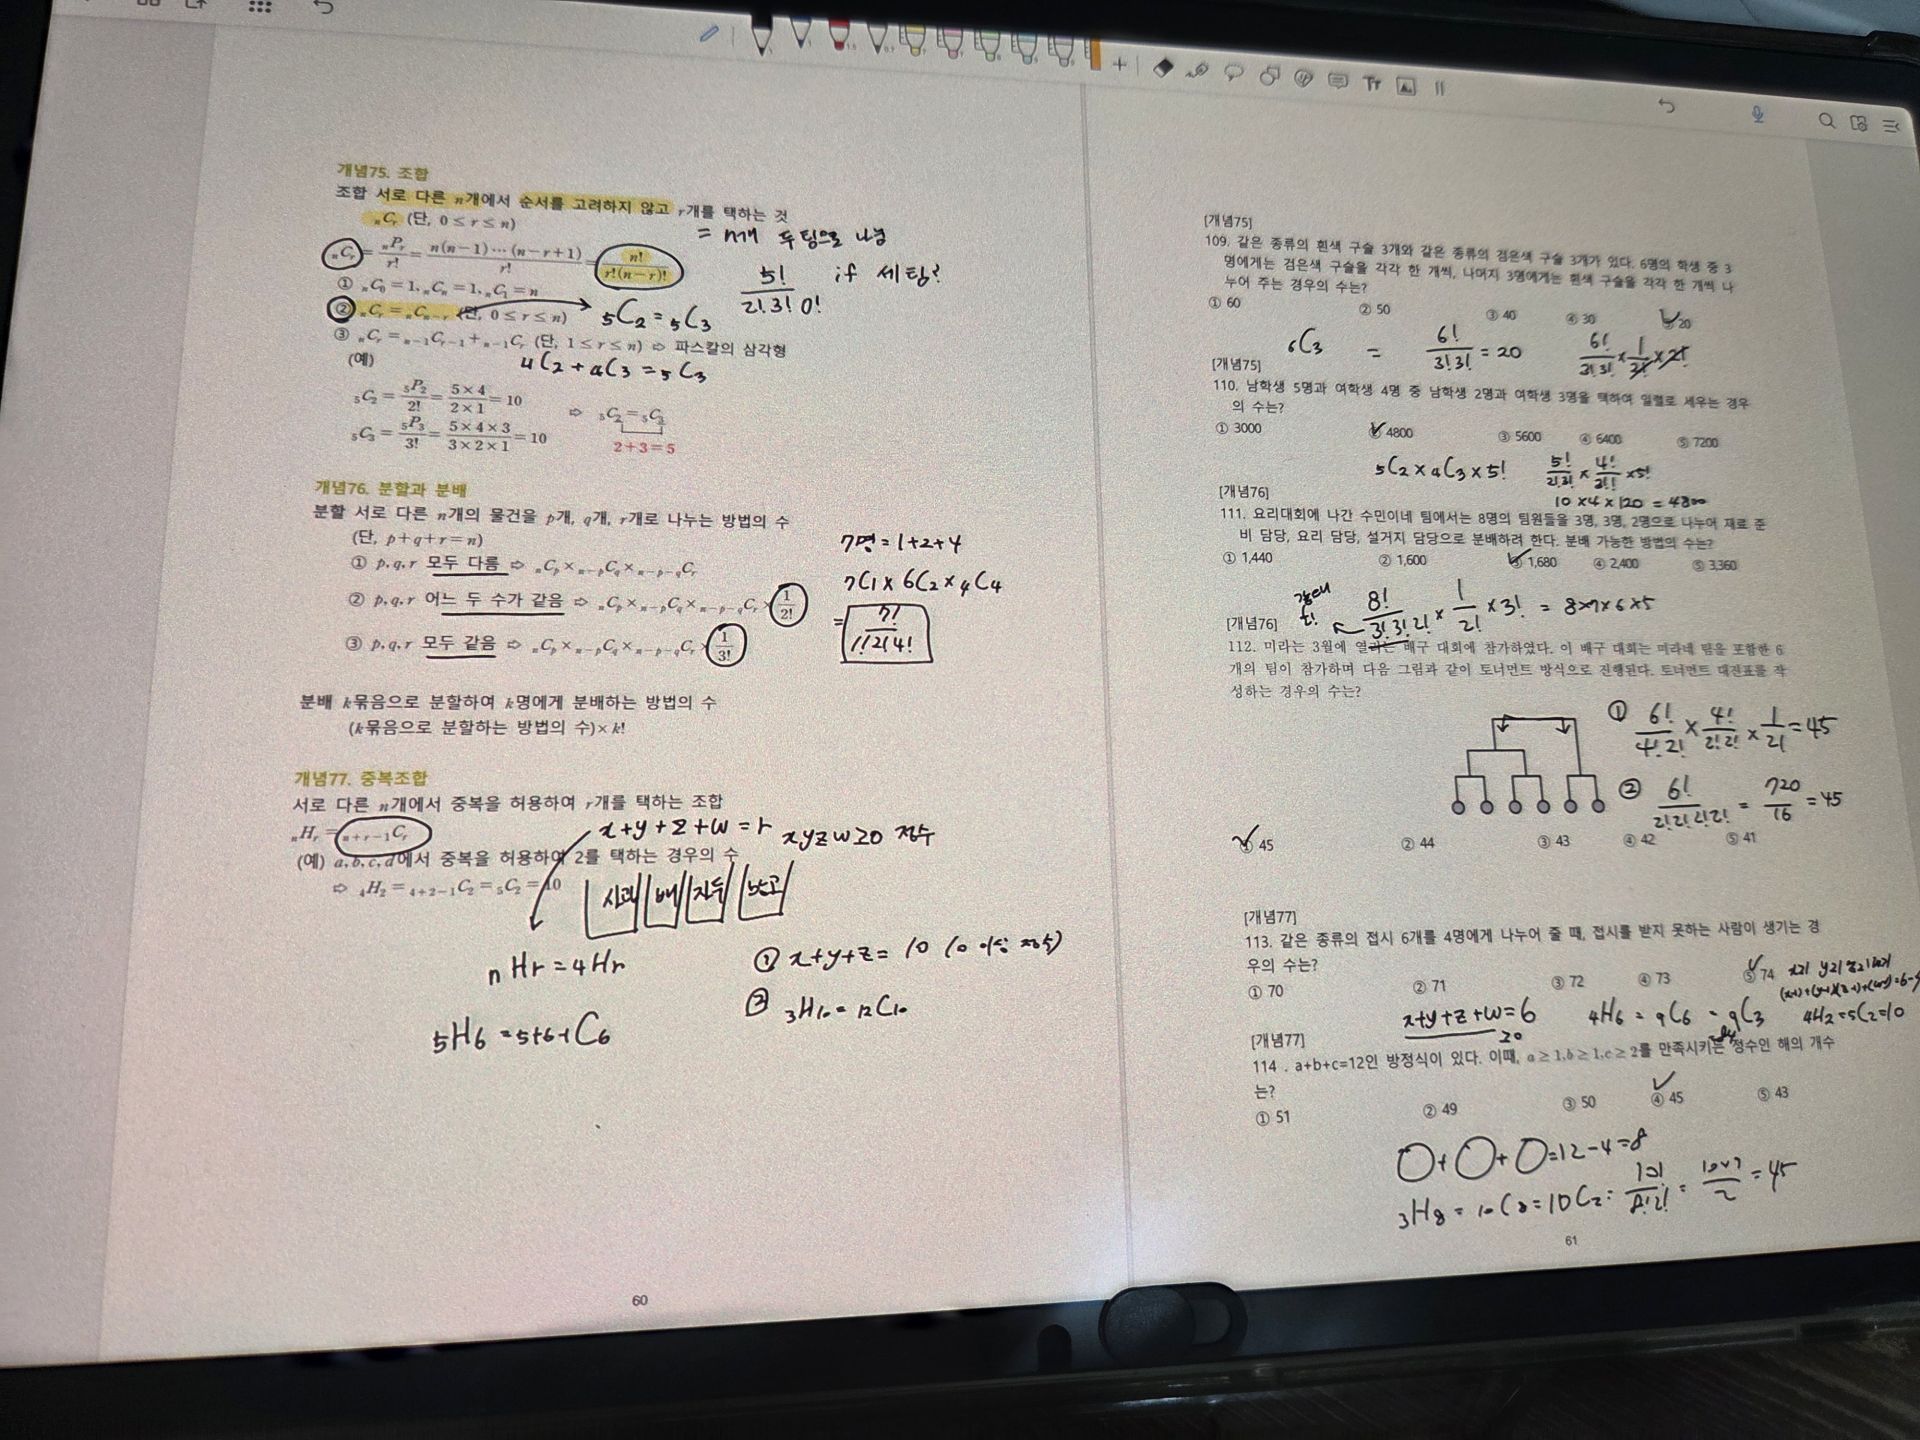 개념75. 조합
조합 서로 다른 n개에서 순서를 고려하지 않고 r개를 택하는 것
nCr (단, 0≤r≤n)
= n개 두 팀으로 나눔
nCr = nPr/r! = n(n-1)⋯(n-r+1)/r! = n!/r!(n-r)!
5!/2!3!0! if 세팀?
① nC0=1, nCn=1, nC1=n
② nCr = nCn-r (단, 0≤r≤n) 5C2 = 5C3
③ nCr = n-1Cr-1 + n-1Cr (단, 1≤r≤n) ⇨ 파스칼의 삼각형
(예) 4C2 + 4C3 = 5C3
5C2 = 5P2/2! = 5×4/2×1 = 10 ⇨ 5C2 = 5C3
5C3 = 5P3/3! = 5×4×3/3×2×1 = 10 2+3=5
개념76. 분할과 분배
분할 서로 다른 n개의 물건을 p개, q개, r개로 나누는 방법의 수
(단, p+q+r=n)
① p, q, r 모두 다름 ⇨ nCp × n-pCq × n-p-qCr
② p, q, r 어느 두 수가 같음 ⇨ nCp × n-pCq × n-p-qCr × 1/2!
③ p, q, r 모두 같음 ⇨ nCp × n-pCq × n-p-qCr × 1/3!
7명 = 1+2+4
7C1 × 6C2 × 4C4
= 7!/1!2!4!
분배 k묶음으로 분할하여 k명에게 분배하는 방법의 수
(k묶음으로 분할하는 방법의 수)×k!
개념77. 중복조합
서로 다른 n개에서 중복을 허용하여 r개를 택하는 조합
nHr = n+r-1Cr
x+y+z+w=r xyzw≥0 정수
(예) a, b, c, d에서 중복을 허용하여 2를 택하는 경우의 수
⇨ 4H2 = 4+2-1C2 = 5C2 = 10
사과 배 자두 망고
nHr = 4Hr
5H6 = 5+6-1C6
① x+y+z = 10 (0 이상 정수)
② 3H10 = 12C10
60
[개념75]
109. 같은 종류의 흰색 구슬 3개와 같은 종류의 검은색 구슬 3개가 있다. 6명의 학생 중 3
명에게는 검은색 구슬을 각각 한 개씩, 나머지 3명에게는 흰색 구슬을 각각 한 개씩 나
누어 주는 경우의 수는?
① 60 ② 50 ③ 40 ④ 30 ⑤ 20
6C3 = 6!/3!3! = 20 6!/3!3! × 1/2! × 2!
[개념75]
110. 남학생 5명과 여학생 4명 중 남학생 2명과 여학생 3명을 택하여 일렬로 세우는 경우
의 수는?
① 3000 ② 4800 ③ 5600 ④ 6400 ⑤ 7200
5C2 × 4C3 × 5! 5!/2!3! × 4!/3!1! × 5!
10 × 4 × 120 = 4800
[개념76]
111. 요리대회에 나간 수민이네 팀에서는 8명의 팀원들을 3명, 3명, 2명으로 나누어 재료 준
비 담당, 요리 담당, 설거지 담당으로 분배하려 한다. 분배 가능한 방법의 수는?
① 1,440 ② 1,600 ③ 1,680 ④ 2,400 ⑤ 3,360
8!/3!3!2! × 1/2! × 3! = 8×7×6×5
[개념76]
112. 미라는 3월에 열리는 배구 대회에 참가하였다. 이 배구 대회는 미라네 팀을 포함한 6
개의 팀이 참가하며 다음 그림과 같이 토너먼트 방식으로 진행된다. 토너먼트 대진표를 작
성하는 경우의 수는?
① 6!/4!2! × 4!/2!2! × 1/2! = 45
② 6!/2!2!2!2! = 720/16 = 45
① 45 ② 44 ③ 43 ④ 42 ⑤ 41
[개념77]
113. 같은 종류의 접시 6개를 4명에게 나누어 줄 때, 접시를 받지 못하는 사람이 생기는 경
우의 수는?
① 70 ② 71 ③ 72 ④ 73 ⑤ 74
x+y+z+w=6
≥0
4H6 = 9C6 = 9C3
=84
4H2=5C2=10
[개념77]
114 . a+b+c=12인 방정식이 있다. 이때, a≥1, b≥1, c≥2를 만족시키는 정수인 해의 개수
는?
① 51 ② 49 ③ 50 ④ 45 ⑤ 43
○+○+○=12-4=8
3H8 = 10C8 = 10C2 = 10!/8!2! = 10×9/2 = 45
61